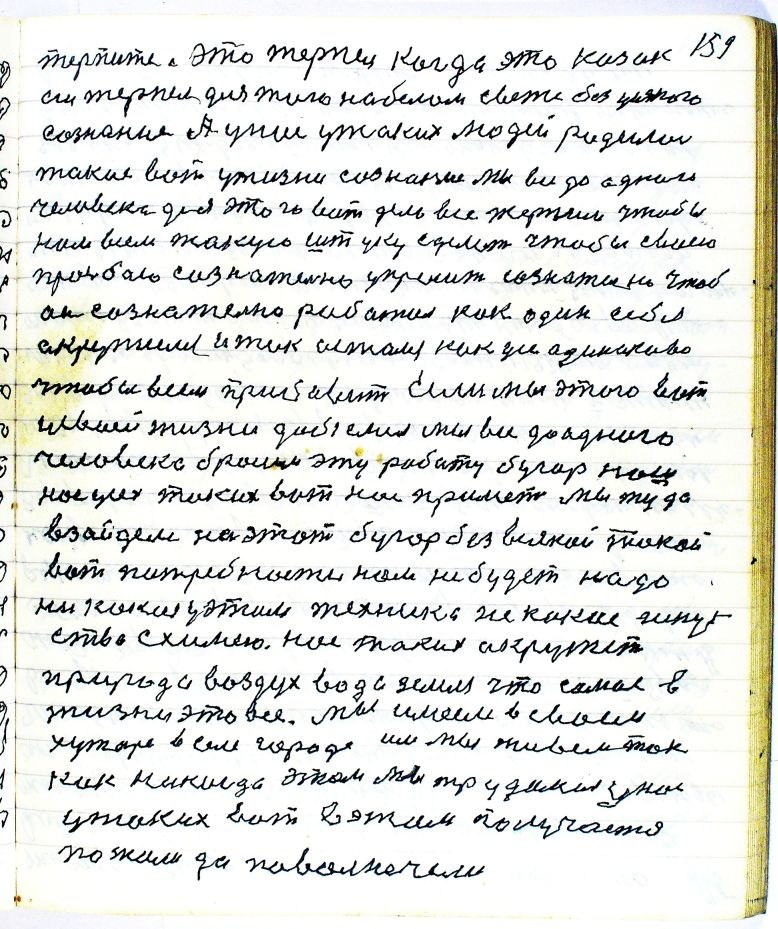 159
терпите. это терпел когда это казак
ств сознание А унии ужаких людей родилос
такое вот ужизни сознание мы все до одного
человека для этого вот дела все терпели чтобы
нам всем такую штуку сделат чтобы своею
прозбаю сознателно упросит сознателно чтоб
он сознателно работал как один себя
окружили и так осталя как уси одинаково
чтобы всем прибавит Если мы этого вот
усвоей жизни добелися мы все доодного
человека бросим эту работу бугор наш
нас усех таких вот нас примет мы туда
взайдем на этот бугор без всякой такой
вот потребности нам небудет надо
ни какая уэтом техника не какое
ства схимею. нас таких окружит
природа воздух вода земля что самае в
жизни это все. мы имеем в своем
хуторе в селе городе или мы живем так
как никогда этом мы трудимся унас
утаких вот вэтом получается
пожили да поволночели